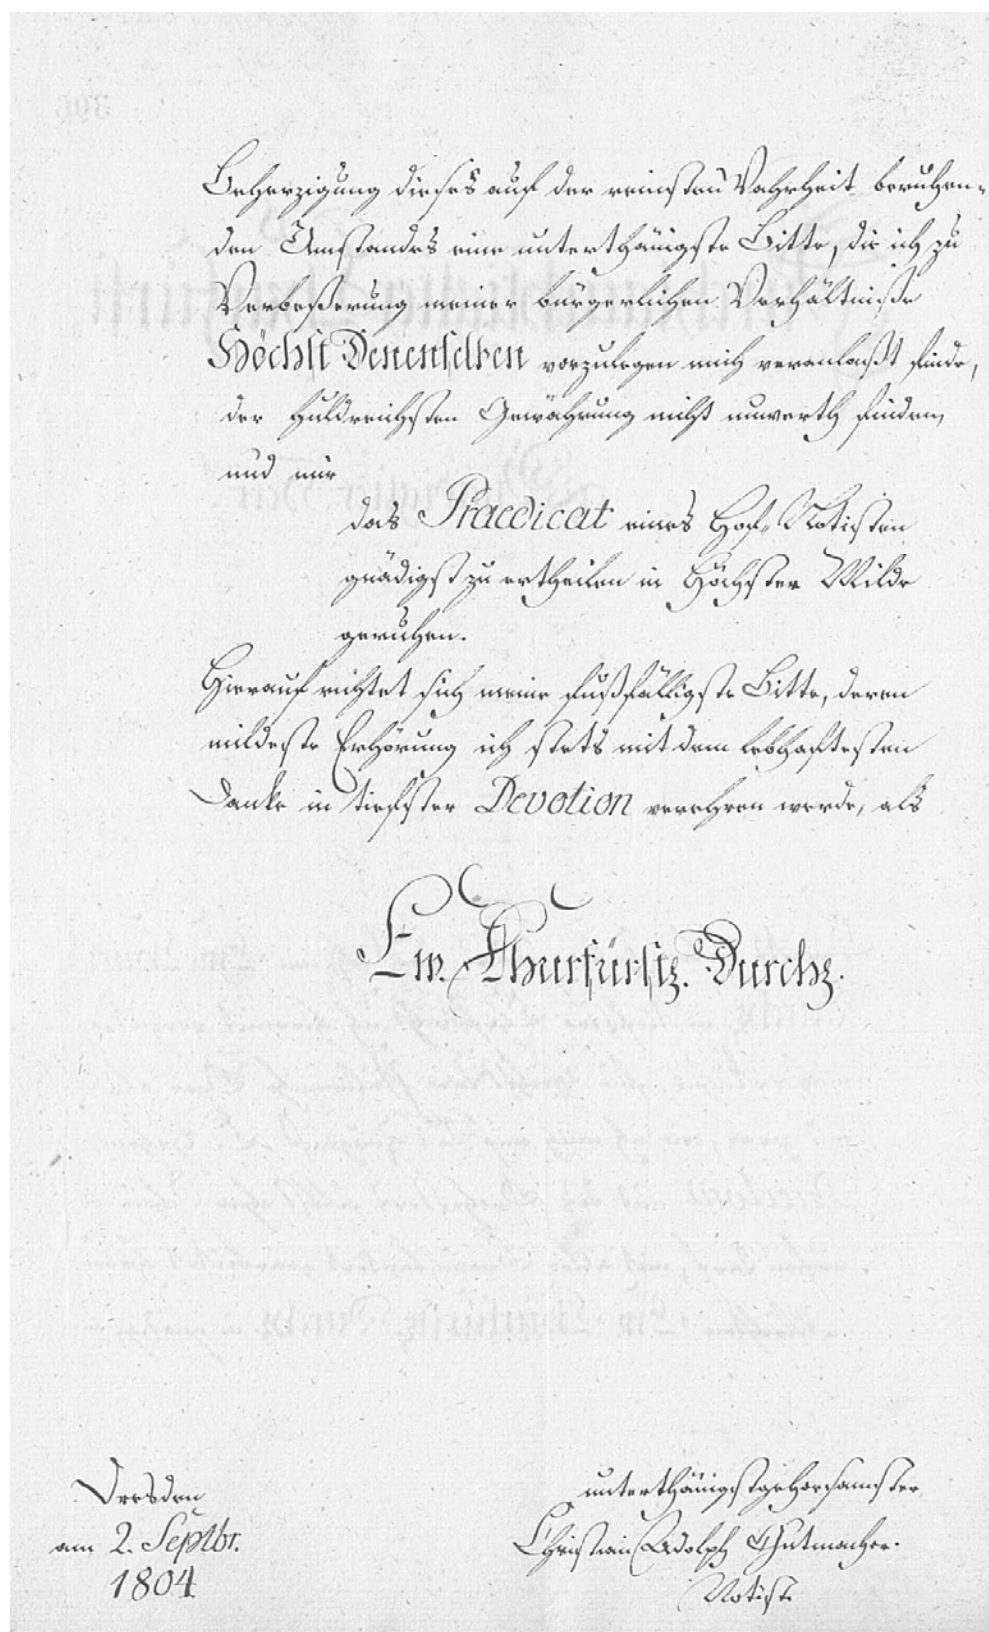 Beherzigung dieses auf der reinsten Wahrheit beruhen-
den Umstandes eine unterthänigste Bitte, die ich zu
Verbeßerung meiner bürgerlichen Verhältniße
Höchst Denenselben vorzulegen mich veranlaßt finde,
der huldreichsten Gewährung nicht unwerth finden,
und mir
das Praedicat eines Hof-Notisten
gnädigst zu ertheilen in Höchster Milde
geruhen.
Hierauf richtet sich meine fußfälligste Bitte, deren
mildeste Erhörung ich stets mit dem lebhaftesten
Danke in tiefster Devotion verehren werde, als
Ew. Churfürstl. Durchl.
unterthänigstgehorsamster
Dresden
am 2. Septbr.
1804
Christian Adolph Gutmacher.
Notist